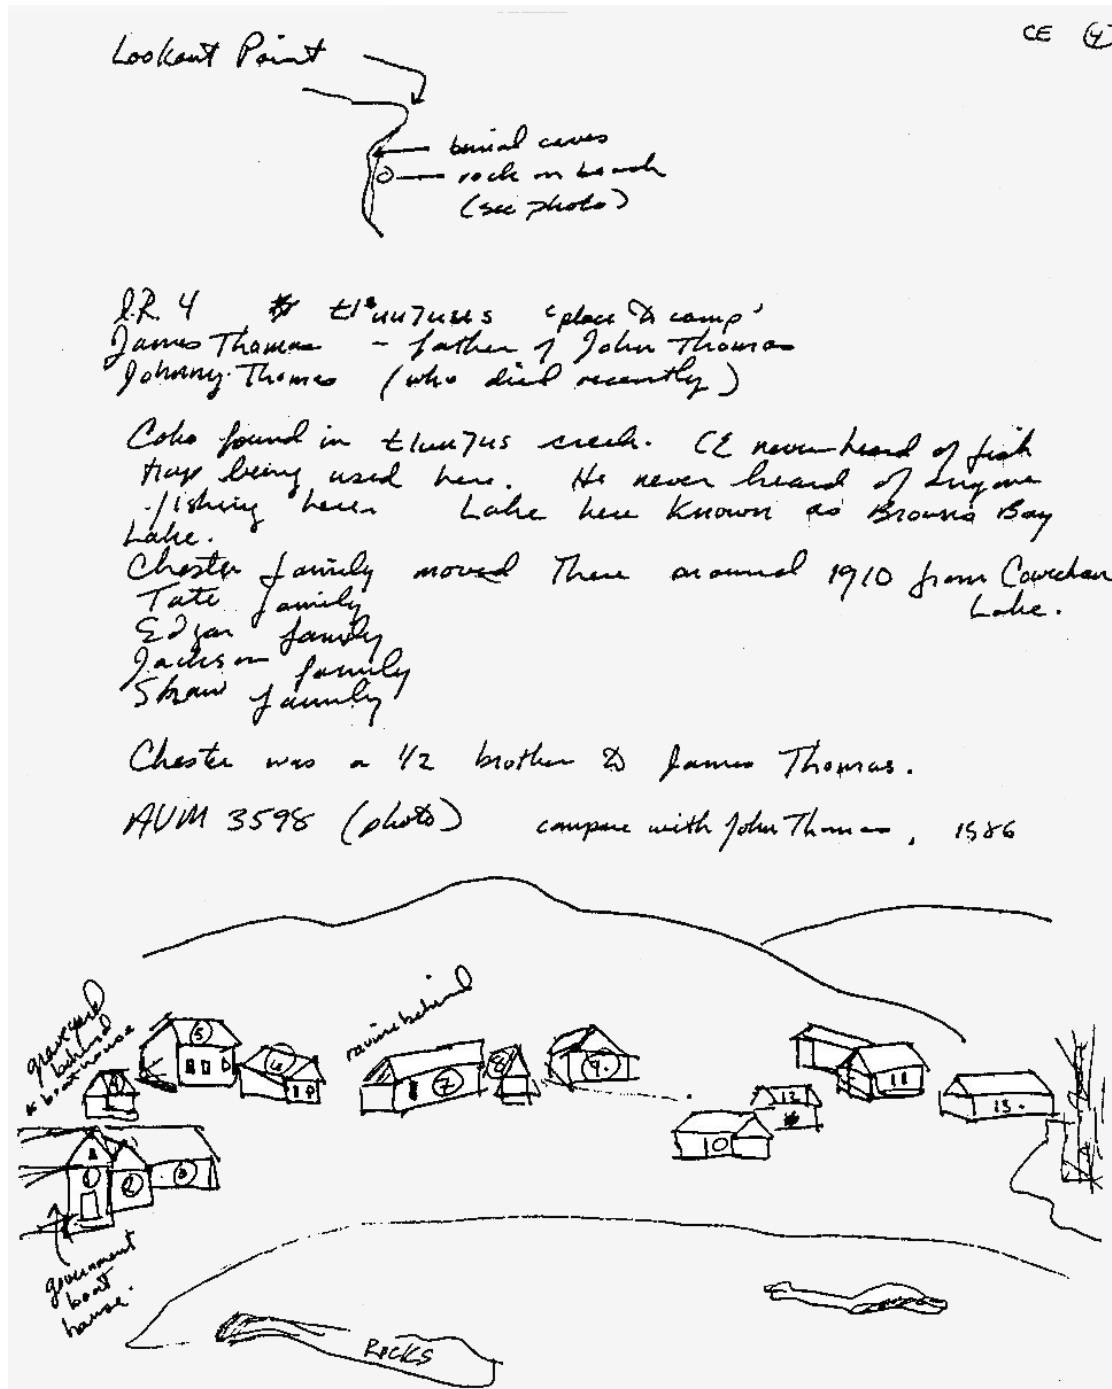 CE 4
Lookout Point
burial caves
rock on beach
(see photo)
I.R. 4 'place to camp'
James Thomas - father of John Thomas
Johnny Thomas (who died recently)
Coho found in creek. CE never heard of fish
traps being used here. He never heard of anyone
fishing here. Lake here known as Browns Bay
Lake.
Chester family moved there around 1910 from Cowichan
Lake.
Tate family
Edgar family
Jackson family
Shaw family
Chester was a 1/2 brother to James Thomas.
AVM 3598 (photo) compare with John Thomas, 1986
graveyard
behind
* boathouse
ravine behind
4
5
6
7
8
9.
11
12
13.
10
1
2
3
government
boat
house.
ROCKS